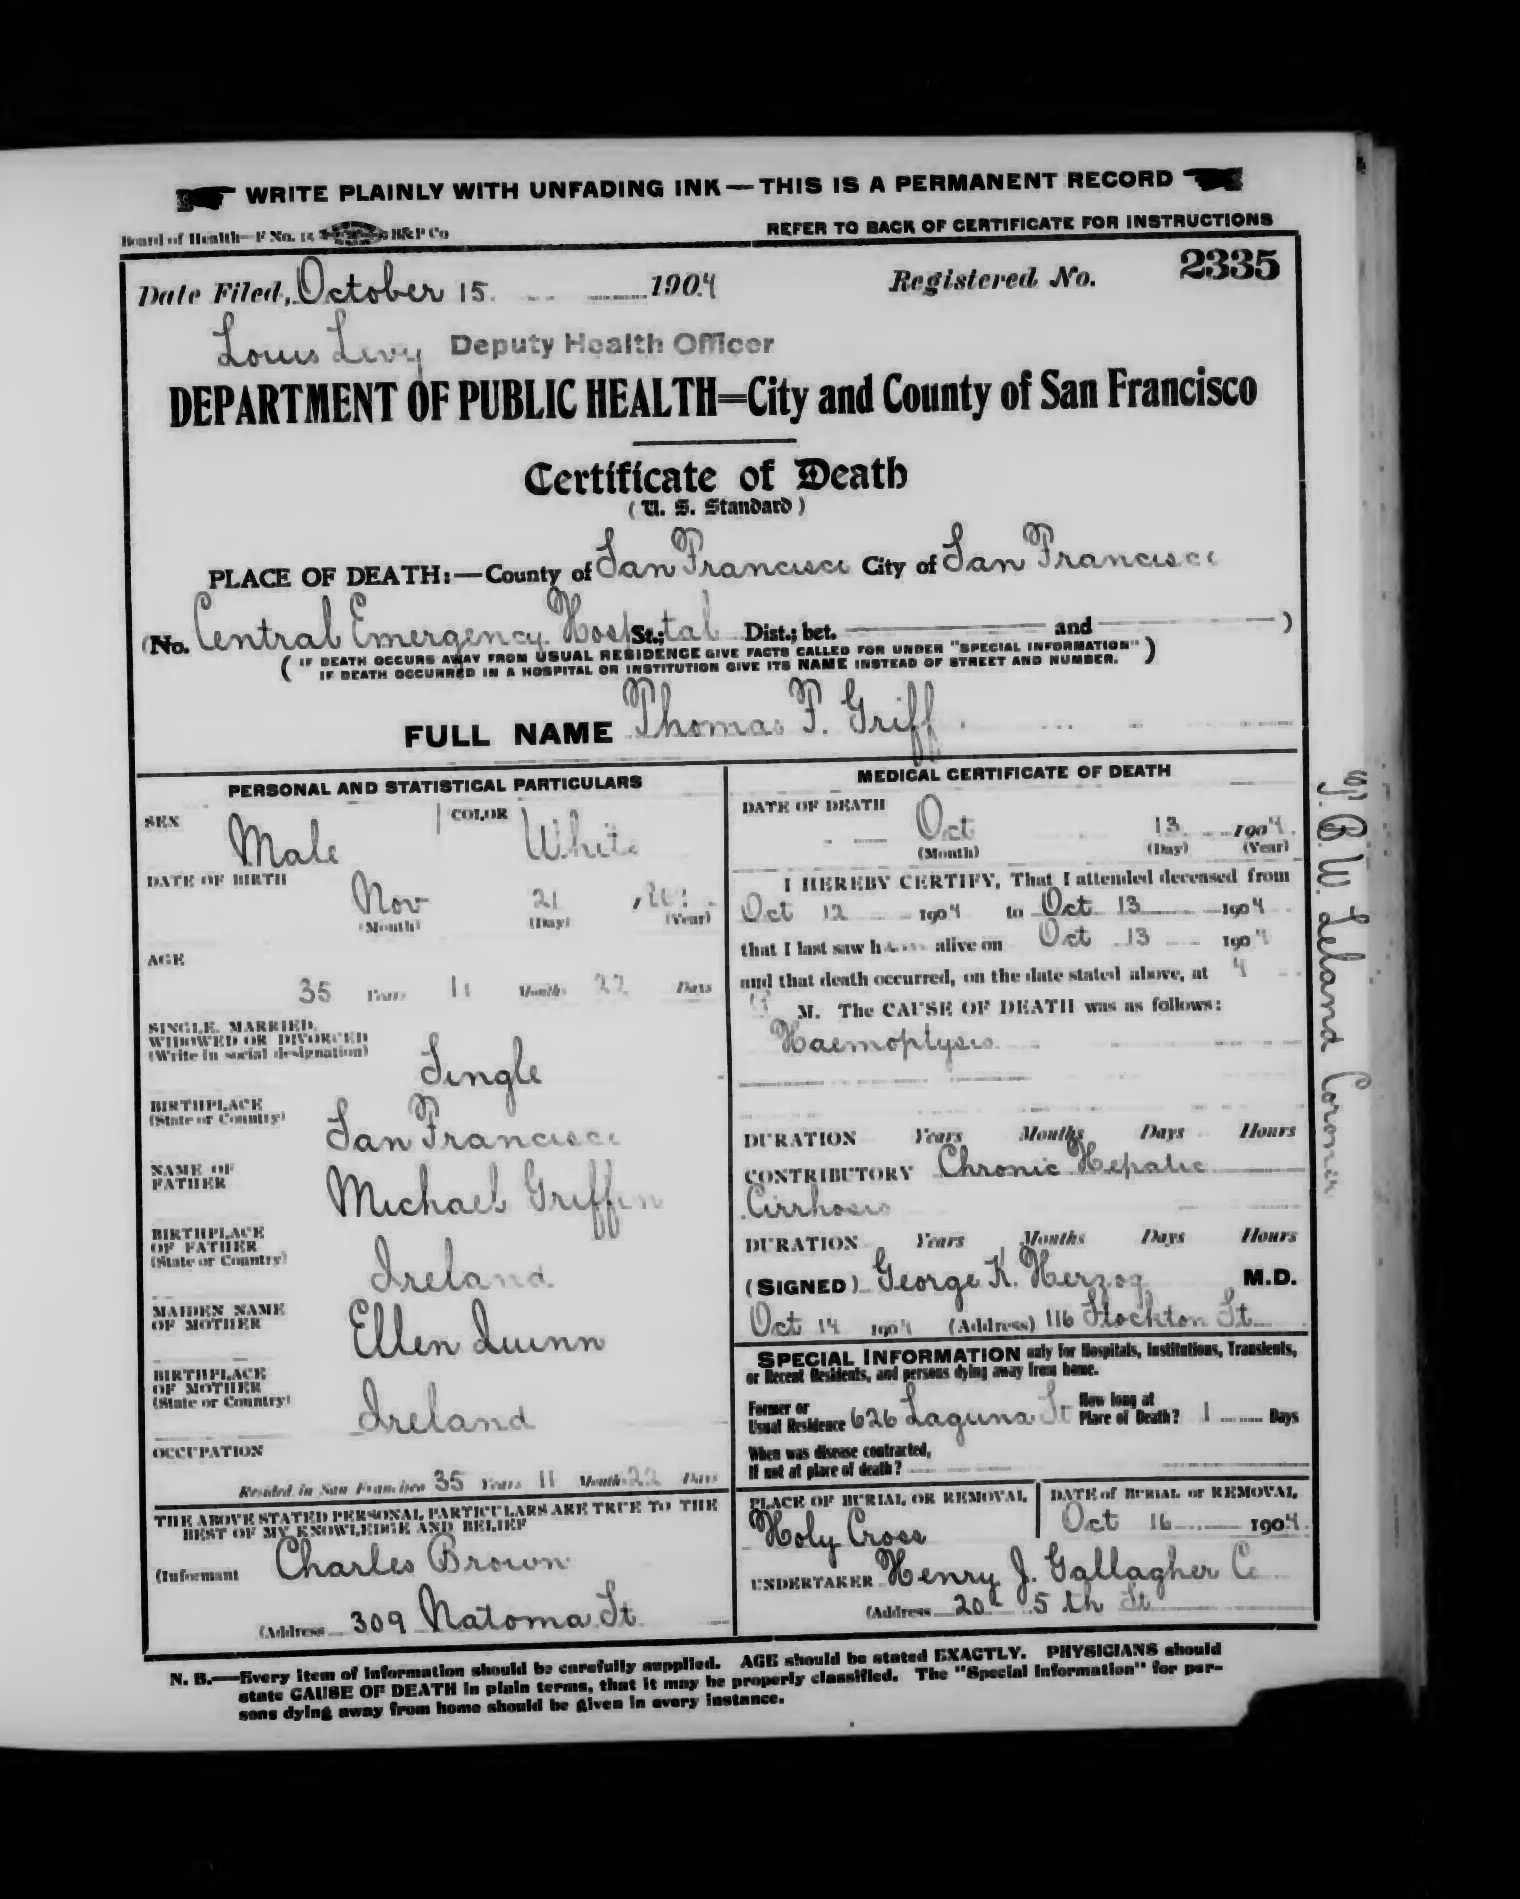 WRITE PLAINLY WITH UNFADING INK—THIS IS A PERMANENT RECORD
Board of Health—F No. 14 B&P Co
REFER TO BACK OF CERTIFICATE FOR INSTRUCTIONS
Date Filed, October 15 1904 Registered No. 2335
Louis Levy Deputy Health Officer
DEPARTMENT OF PUBLIC HEALTH=City and County of San Francisco
Certificate of Death
( U. S. Standard )
PLACE OF DEATH:—County of San Francisco City of San Francisco
(No. Central Emergency Hospital St.; Dist.; bet. and )
( IF DEATH OCCURS AWAY FROM USUAL RESIDENCE GIVE FACTS CALLED FOR UNDER "SPECIAL INFORMATION" )
IF DEATH OCCURRED IN A HOSPITAL OR INSTITUTION GIVE ITS NAME INSTEAD OF STREET AND NUMBER.
FULL NAME Thomas F. Griff
PERSONAL AND STATISTICAL PARTICULARS
SEX Male COLOR White
DATE OF BIRTH Nov 21
(Month) (Day) (Year)
AGE
35 Years 11 Months 22 Days
SINGLE, MARRIED,
WIDOWED OR DIVORCED
(Write in social designation) Single
BIRTHPLACE
(State or Country) San Francisco
NAME OF
FATHER Michael Griffin
BIRTHPLACE
OF FATHER
(State or Country) Ireland
MAIDEN NAME
OF MOTHER Ellen Quinn
BIRTHPLACE
OF MOTHER
(State or Country) Ireland
OCCUPATION
Resided in San Francisco 35 Years 11 Months 22 Days
THE ABOVE STATED PERSONAL PARTICULARS ARE TRUE TO THE
BEST OF MY KNOWLEDGE AND BELIEF
(Informant Charles Brown
(Address 309 Natoma St
MEDICAL CERTIFICATE OF DEATH
DATE OF DEATH
Oct 13 1904
(Month) (Day) (Year)
I HEREBY CERTIFY, That I attended deceased from
Oct 12 1904 to Oct 13 1904
that I last saw h alive on Oct 13 1904
and that death occurred, on the date stated above, at 4
M. The CAUSE OF DEATH was as follows:
Haemoptysis
DURATION Years Months Days Hours
CONTRIBUTORY Chronic Hepatic
Cirrhosis
DURATION Years Months Days Hours
(SIGNED) George K. Herzog M.D.
Oct 14 1904 (Address) 116 Stockton St
SPECIAL INFORMATION only for Hospitals, Institutions, Transients,
or Recent Residents, and persons dying away from home.
Former or
Usual Residence 626 Laguna St
How long at
Place of Death? 1 Days
When was disease contracted,
If not at place of death?
PLACE OF BURIAL OR REMOVAL
Holy Cross
DATE of BURIAL or REMOVAL
Oct 16 1904
UNDERTAKER Henry J. Gallagher Co
(Address 20 5th St
T. B. W. Leland Coroner
N. B.—Every item of information should be carefully supplied. AGE should be stated EXACTLY. PHYSICIANS should
state CAUSE OF DEATH in plain terms, that it may be properly classified. The "Special Information" for per-
sons dying away from home should be given in every instance.